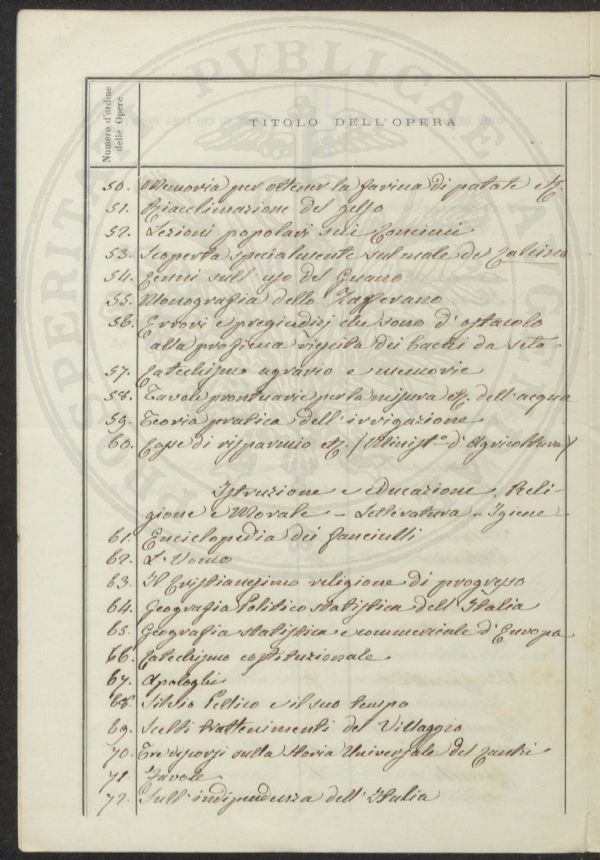 PROSPERITATI PVBLICAE AVGENDAE
Numero d'ordine
delle Opere
TITOLO DELL'OPERA
50. Memoria per ottener la farina di patate &.
51. Riacclimazione del gelso
52. Lezioni popolari sui Concimi
53. Scoperta specialmente sul male del Calcino
54. Cenni sull'uso del Guano
55. Monografia dello Zafferano
56. Errori e pregiudizj che sono d'ostacolo
alla prossima riescita dei bachi da seta
57. Catechismo agrario e memorie
58. Tavole prontuarie per la misura &. dell'acqua
59. Teoria pratica dell'irrigazione
60. Casse di risparmio &. (Minist.o d'Agricoltura)
Istruzione e educazione, Reli-
gione e Morale - Letteratura - Igiene -
61. Enciclopedia dei fanciulli
62. L'Uomo
63. Il Cristianesimo religione di progresso
64. Geografia Politico statistica dell'Italia
65. Geografia statistica e commerciale d'Europa
66. Catechismo costituzionale
67. Apologhi
68. Silvio Pellico e il suo tempo
69. Scelti trattenimenti del Villaggio
70. Tre discorsi sulla storia Universale del Cantù
71. Favole
72. Sull'indipendenza dell'Italia